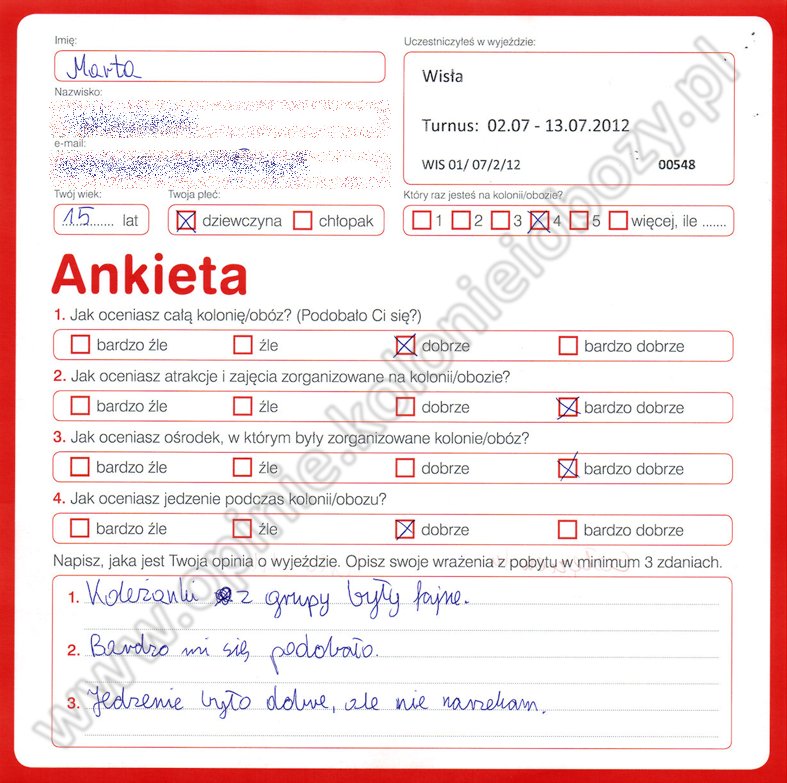 Imię:
Marta
Nazwisko:
e-mail:
Twój wiek:
15 lat
Twoja płeć:
dziewczyna chłopak
Uczestniczyłeś w wyjeździe:
Wisła
Turnus: 02.07 - 13.07.2012
WIS 01/ 07/2/12 00548
Który raz jesteś na kolonii/obozie?
1 2 3 4 5 więcej, ile .......
Ankieta
1. Jak oceniasz całą kolonię/obóz? (Podobało Ci się?)
bardzo źle źle dobrze bardzo dobrze
2. Jak oceniasz atrakcje i zajęcia zorganizowane na kolonii/obozie?
bardzo źle źle dobrze bardzo dobrze
3. Jak oceniasz ośrodek, w którym były zorganizowane kolonie/obóz?
bardzo źle źle dobrze bardzo dobrze
4. Jak oceniasz jedzenie podczas kolonii/obozu?
bardzo źle źle dobrze bardzo dobrze
Napisz, jaka jest Twoja opinia o wyjeździe. Opisz swoje wrażenia z pobytu w minimum 3 zdaniach.
1. Koleżanki z grupy były fajne.
2. Bardzo mi się podobało.
3. Jedzenie było dobre, ale nie narzekam.
www.opinie.kolonieiobozy.pl